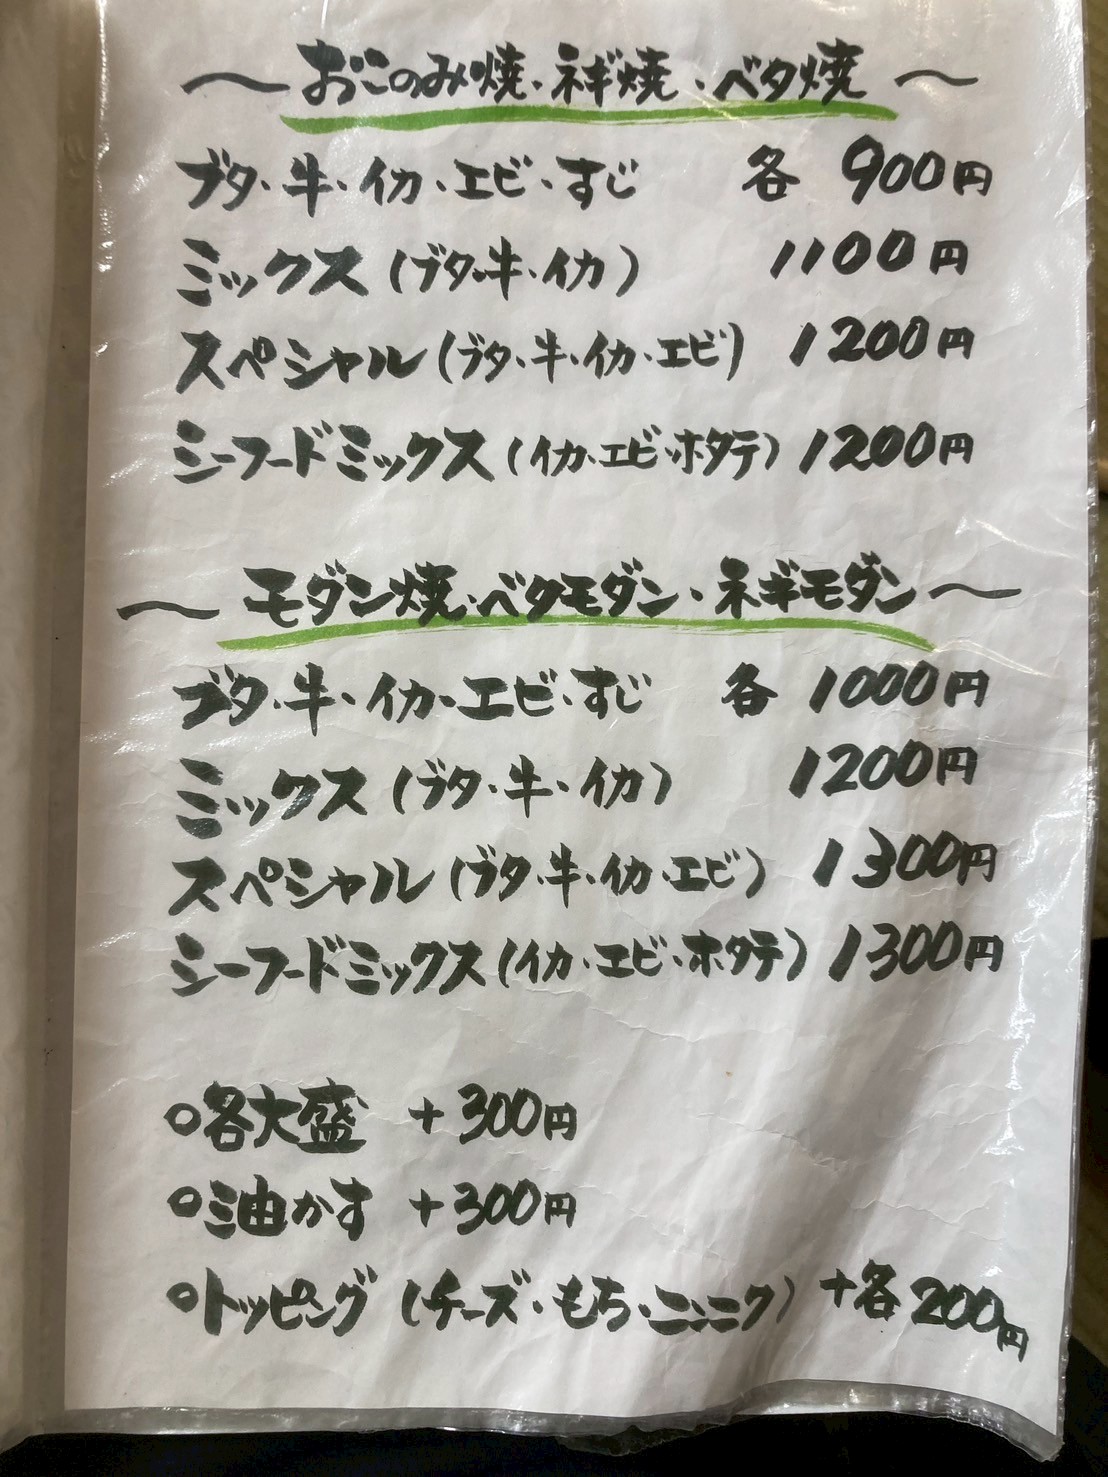 〜おこのみ焼・ネギ焼・ベタ焼〜
ブタ・牛・イカ・エビ・すじ 各 900円
ミックス(ブタ・牛・イカ) 1100円
スペシャル(ブタ・牛・イカ・エビ) 1200円
シーフードミックス(イカ・エビ・ホタテ) 1200円
〜モダン焼・ベタモダン・ネギモダン〜
ブタ・牛・イカ・エビ・すじ 各 1000円
ミックス(ブタ・牛・イカ) 1200円
スペシャル(ブタ・牛・イカ・エビ) 1300円
シーフードミックス(イカ・エビ・ホタテ) 1300円
○各大盛 +300円
○油かす +300円
○トッピング(チーズ・もち・ニンニク) +各200円